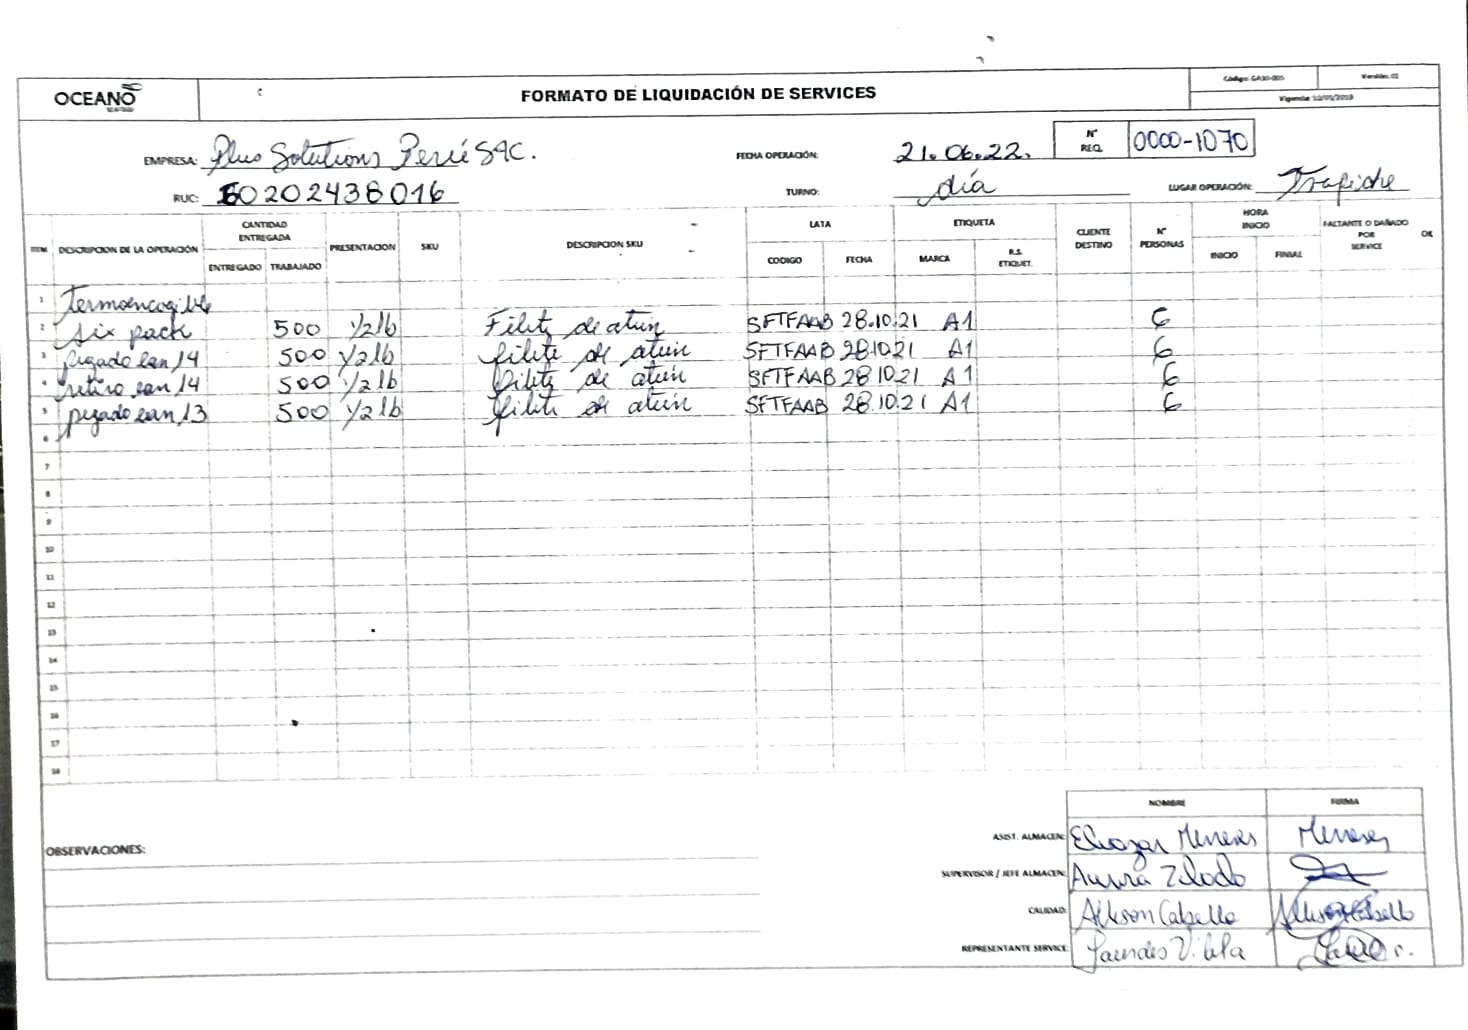 OCEANO
FORMATO DE LIQUIDACIÓN DE SERVICES
Código: GA30-005
Versión: 01
Vigencia: 10/05/2019
EMPRESA: Plus Solutions Perú SAC.
FECHA OPERACIÓN: 21.06.22.
N° REQ. 0000-1070
RUC: 20202438016
TURNO: día
LUGAR OPERACIÓN: Trapiche
ITEM DESCRIPCION DE LA OPERACIÓN CANTIDAD ENTREGADA PRESENTACION SKU DESCRIPCION SKU LATA ETIQUETA CLIENTE DESTINO N° PERSONAS HORA INICIO FALTANTE O DAÑADO POR SERVICE OK
ENTREGADO TRABAJADO CODIGO FECHA MARCA R.S. ETIQUET. INICIO FINIAL
1 Termoencogible
2 six pack 500 1/2lb Filete de atún SFTFAAB 28.10.21 A1 6
3 pegado ean 14 500 1/2lb filete de atún SFTFAAB 28.10.21 A1 6
4 retiro ean 14 500 1/2lb filete de atún SFTFAAB 28 10.21 A1 6
5 pegado ean 13 500 1/2lb filete de atún SFTFAAB 28.10.21 A1 6
6
7
8
9
10
11
12
13
14
15
16
17
18
NOMBRE FIRMA
OBSERVACIONES:
ASIST. ALMACEN: Eleazar Meneses Meneses
SUPERVISOR / JEFE ALMACEN: Aurora
CALIDAD: Allison Cabello Allison Cabello
REPRESENTANTE SERVICE: Lourdes Vilela